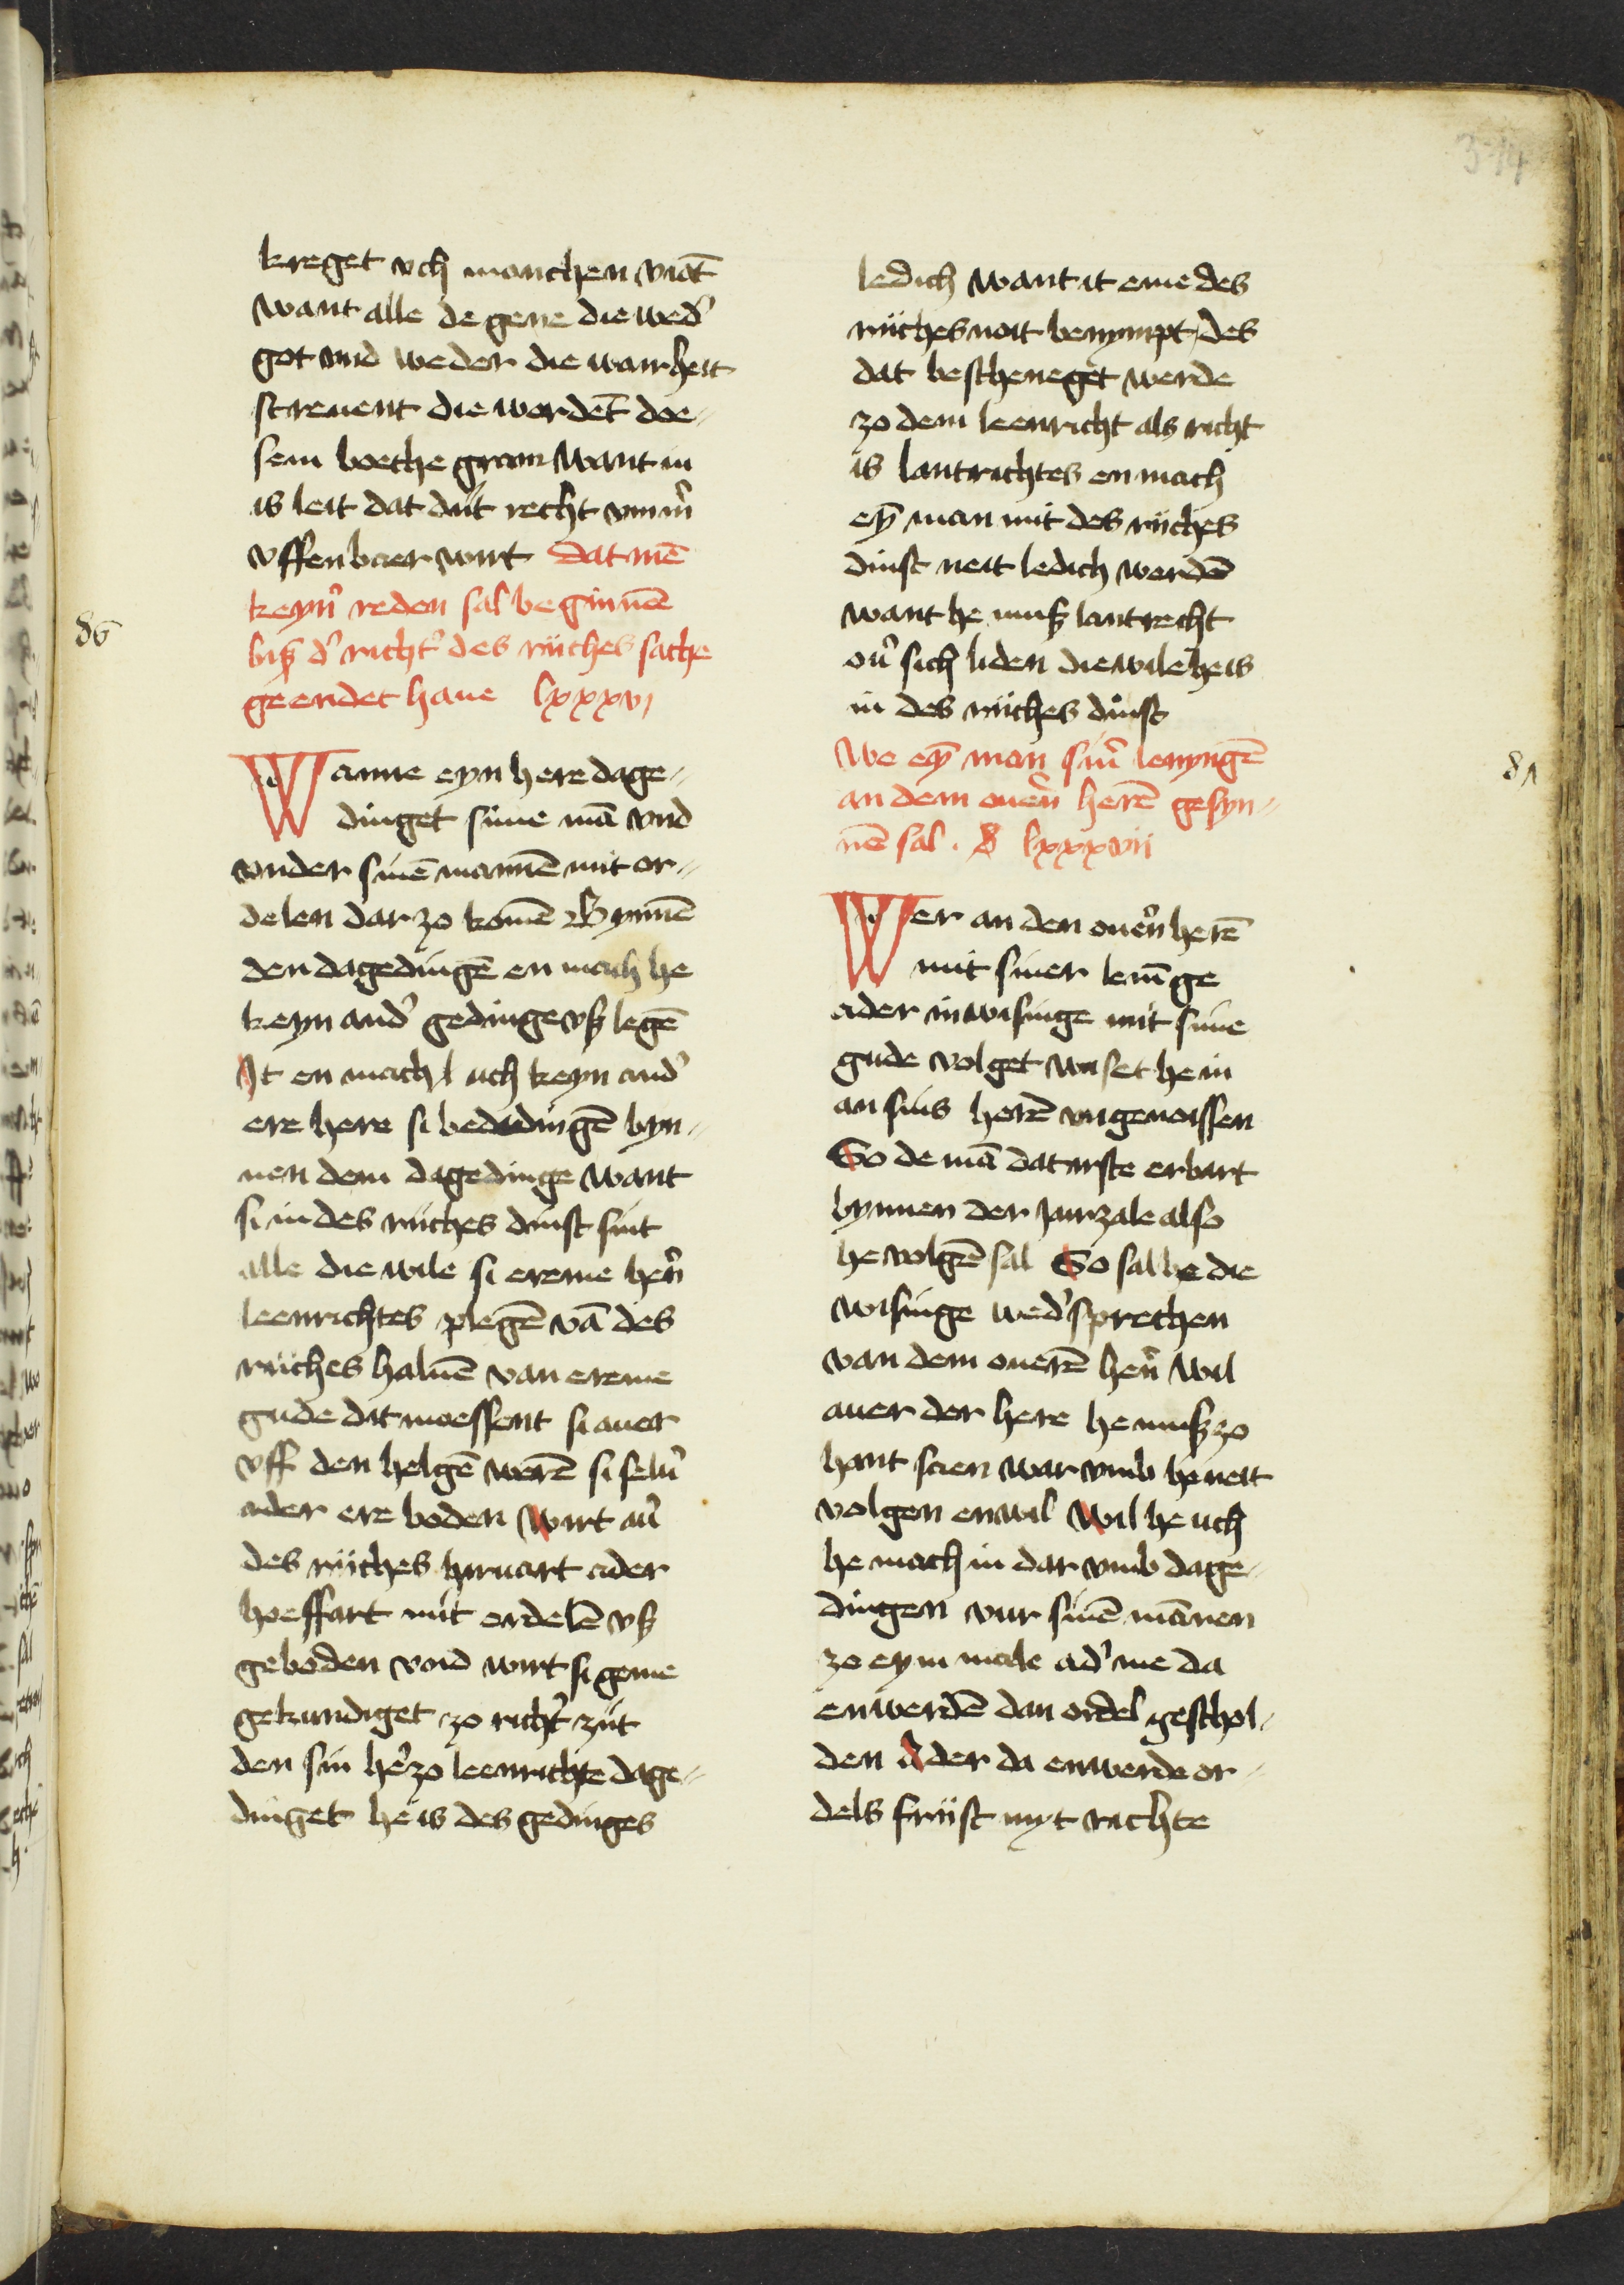 314
kreget vch manchen viāt
want alle de gene die wed'
got vnd weder die warheit
streuent die wordēt doe-
sem boeche gram want in
is leit dat dűt recht vmm'
vffenbaer wirt dat mē
keyn' reden sal beginnē
biß d' richt' des rijches sache
geendet haue lxxxvj
86
Wanne eyn here dage-
dinget sime mā vnd
vnder sinē mannē mit or-
delen dar zo komē Bynnē
den dagedingē en mach he
keyn and' gedinge vß legē
It en mach uch keyn and'
ere here si bededingē byn-
nen dem dagedinge want
si in des rijches dinst sint
alle die wile si ereme her'n
leenrichtes plegē vā des
rijches haluē van ereme
gude dat moessent si auer
vff den helgē werē si selu'
ader ere boden wirt au'
des rijches heruart ader
hoeffart mit ordelē vß
geboden vnd wirt si yeme
gekundiget zo richt' zijt
den sin he'zo leenrichte dage-
dinget he is des gedinges
ledich want it eme des
rijches noit benympt des
dat bescheneget werde
zo dem leenricht als richt
is lantrichtes en mach
eȳ man mit des rijches
dinst neit ledich werdē
want he muß lantrecht
ou' sich liden die wile he is
in des rijches dinst
We eȳ man sin' lenyngē
an dem ouern herē gesyn-
nē sal . lxxxvii
87
Wer an den ouer'n herē
mit siner lenīge
ader inwisinge mit sime
gude volget wiset he in
an sins herē vngenoissen
So de mā dat irste erbart
bynnen der jairzale also
he volgē sal So sal he die
wisinge wed'sprechen
van dem ouerē her'n wil
auer der here he muß zo
hant scien war vmb he neit
volgen enwil wil he uch
he mach in dar vmb dage-
dingen vur sinē mānen
zo eym male ad' me da
enwerdē dan ordel geschol-
den Ader da enwerde or-
dels frijst myt richte